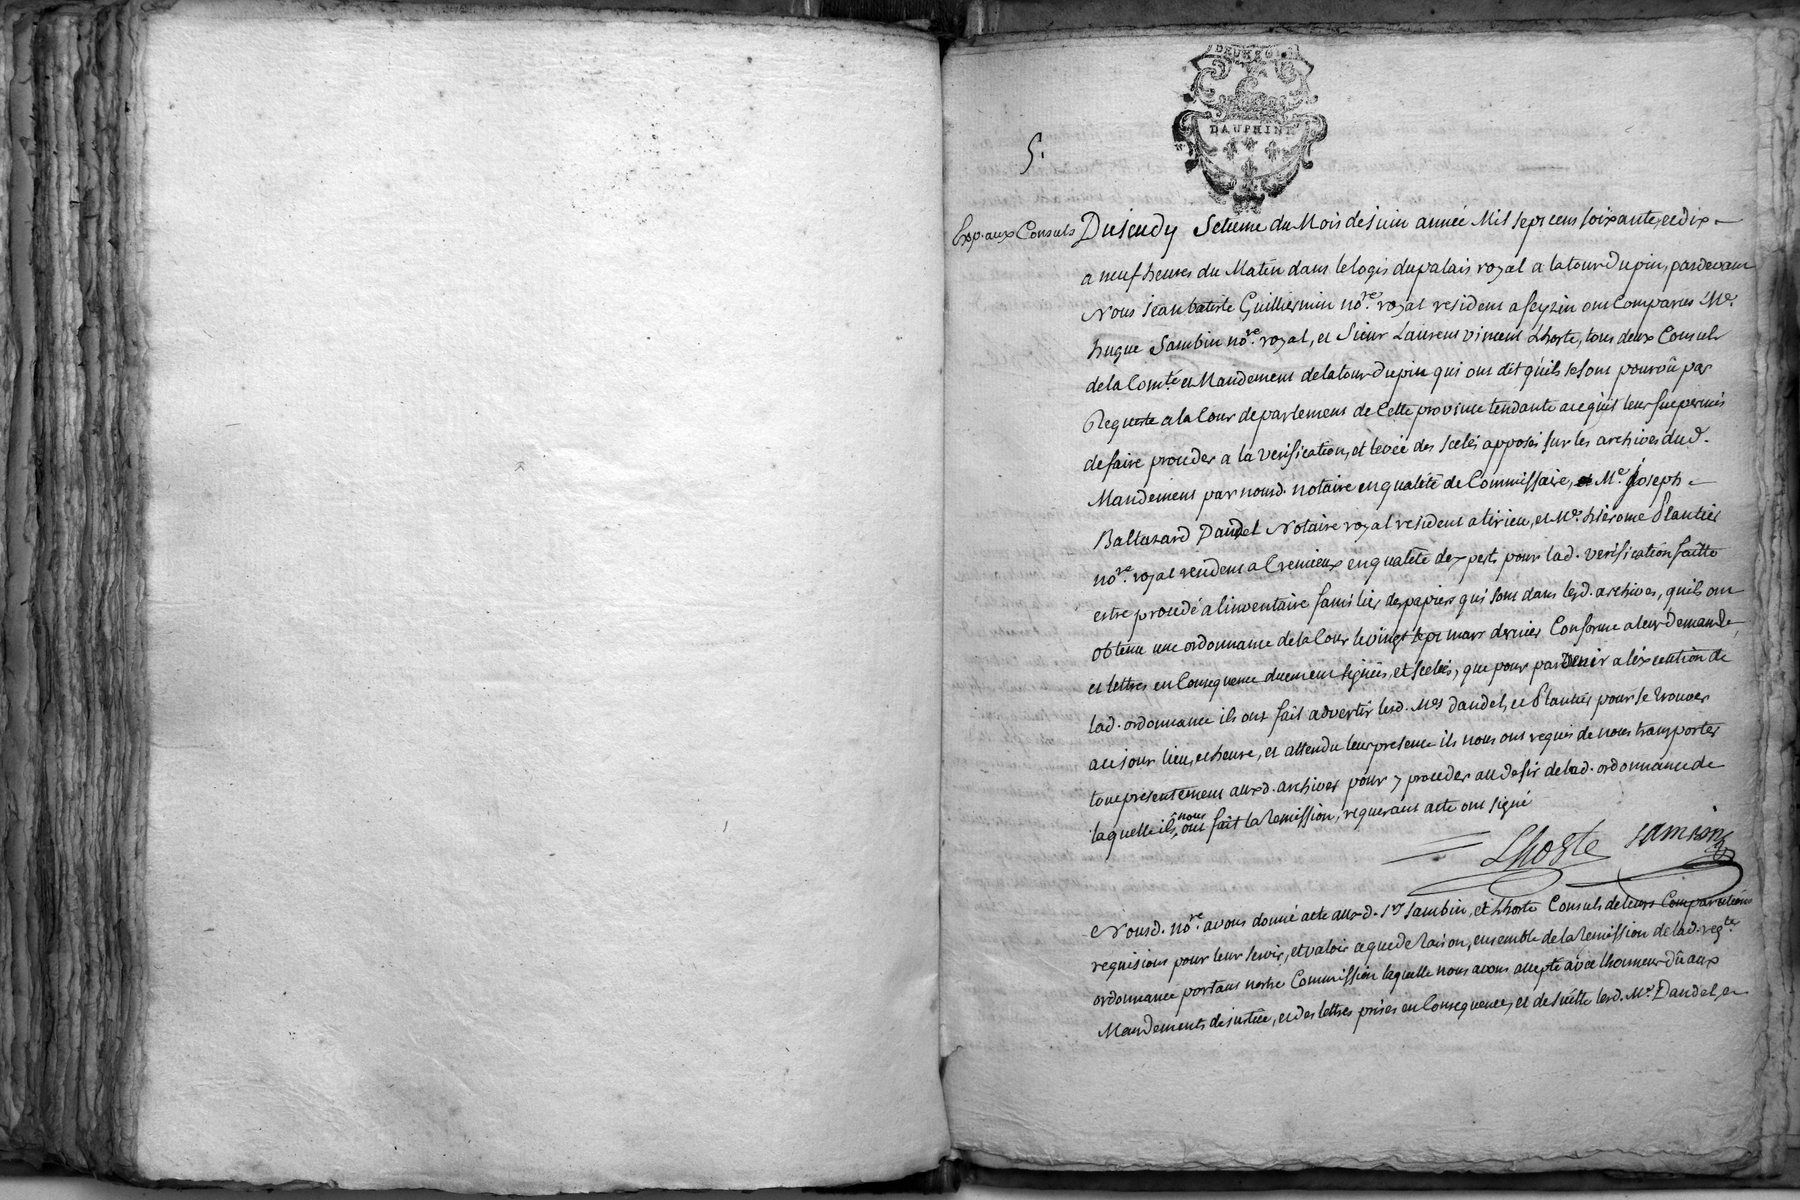 DEUX SOLS
DAUPHINE
5.
Exp. aux Consuls
Du jeudy Setieme du Mois de juin année Mil sept cens soixante, et dix
a neuf heures du Matin dans le logis du palais royal a la tour Dupin, pardevant
Nous jean batiste Guilliermin nore. royal resident a feyzin ont Comparus Me.
hugue Sambin nore. royal, et Sieur Laurens vincent Lhoste, tous deux Consuls
de la Comté. et Mandement de la tour Dupin qui ont dit qu'ils se sont pourvû par
Requeste a la Cour de parlement de Cette province tendante a ce qu'il leur fue permis
de faire proceder a la verification, et levée des scelés apposés sur les archives dud.
Mandement par nousd. notaire en qualité de Commissaire, Me. joseph
Baltazard Daudel Notaire royal resident a tirieu, et Me. hierome Plantier
nore. royal resident a Cremieux en qualité dexpert pour lad. verification faitte
estre procedé a linventaire familier des papiers qui sont dans lesd. archives, quils ont
obtenu une ordonnance de la Cour le vingt sept mars dernier Conforme a leur demande,
et lettres en Consequence duement signées, et scelées, que pour parvenir a l'éxecution de
lad. ordonnance ils ont fait advertir lesd. Mes Daudel, et Plantier pour se trouver
a ce jour lieu, et heure, et attendu leur presence ils nous ont requis de nous transporter
tout presentement auxd. archives pour y proceder au desir de lad. ordonnance de
laquelle ils nous ont fait la remission, requerant acte ont signé
Lhoste Sambin
Nousd. nore. avons donné acte auxd. srs Sambin, et Lhoste Consuls de leurs Comparutions
requisions pour leur servir, et valoir ce que de raison, ensemble de la remission de lad. reqte.
ordonnance portant nostre Commission laquelle nous avons accepté avec lhonneur dû aux
Mandements de justice, et des lettres prises en Consequence, et de suitte lesd. Me. Daudel, et